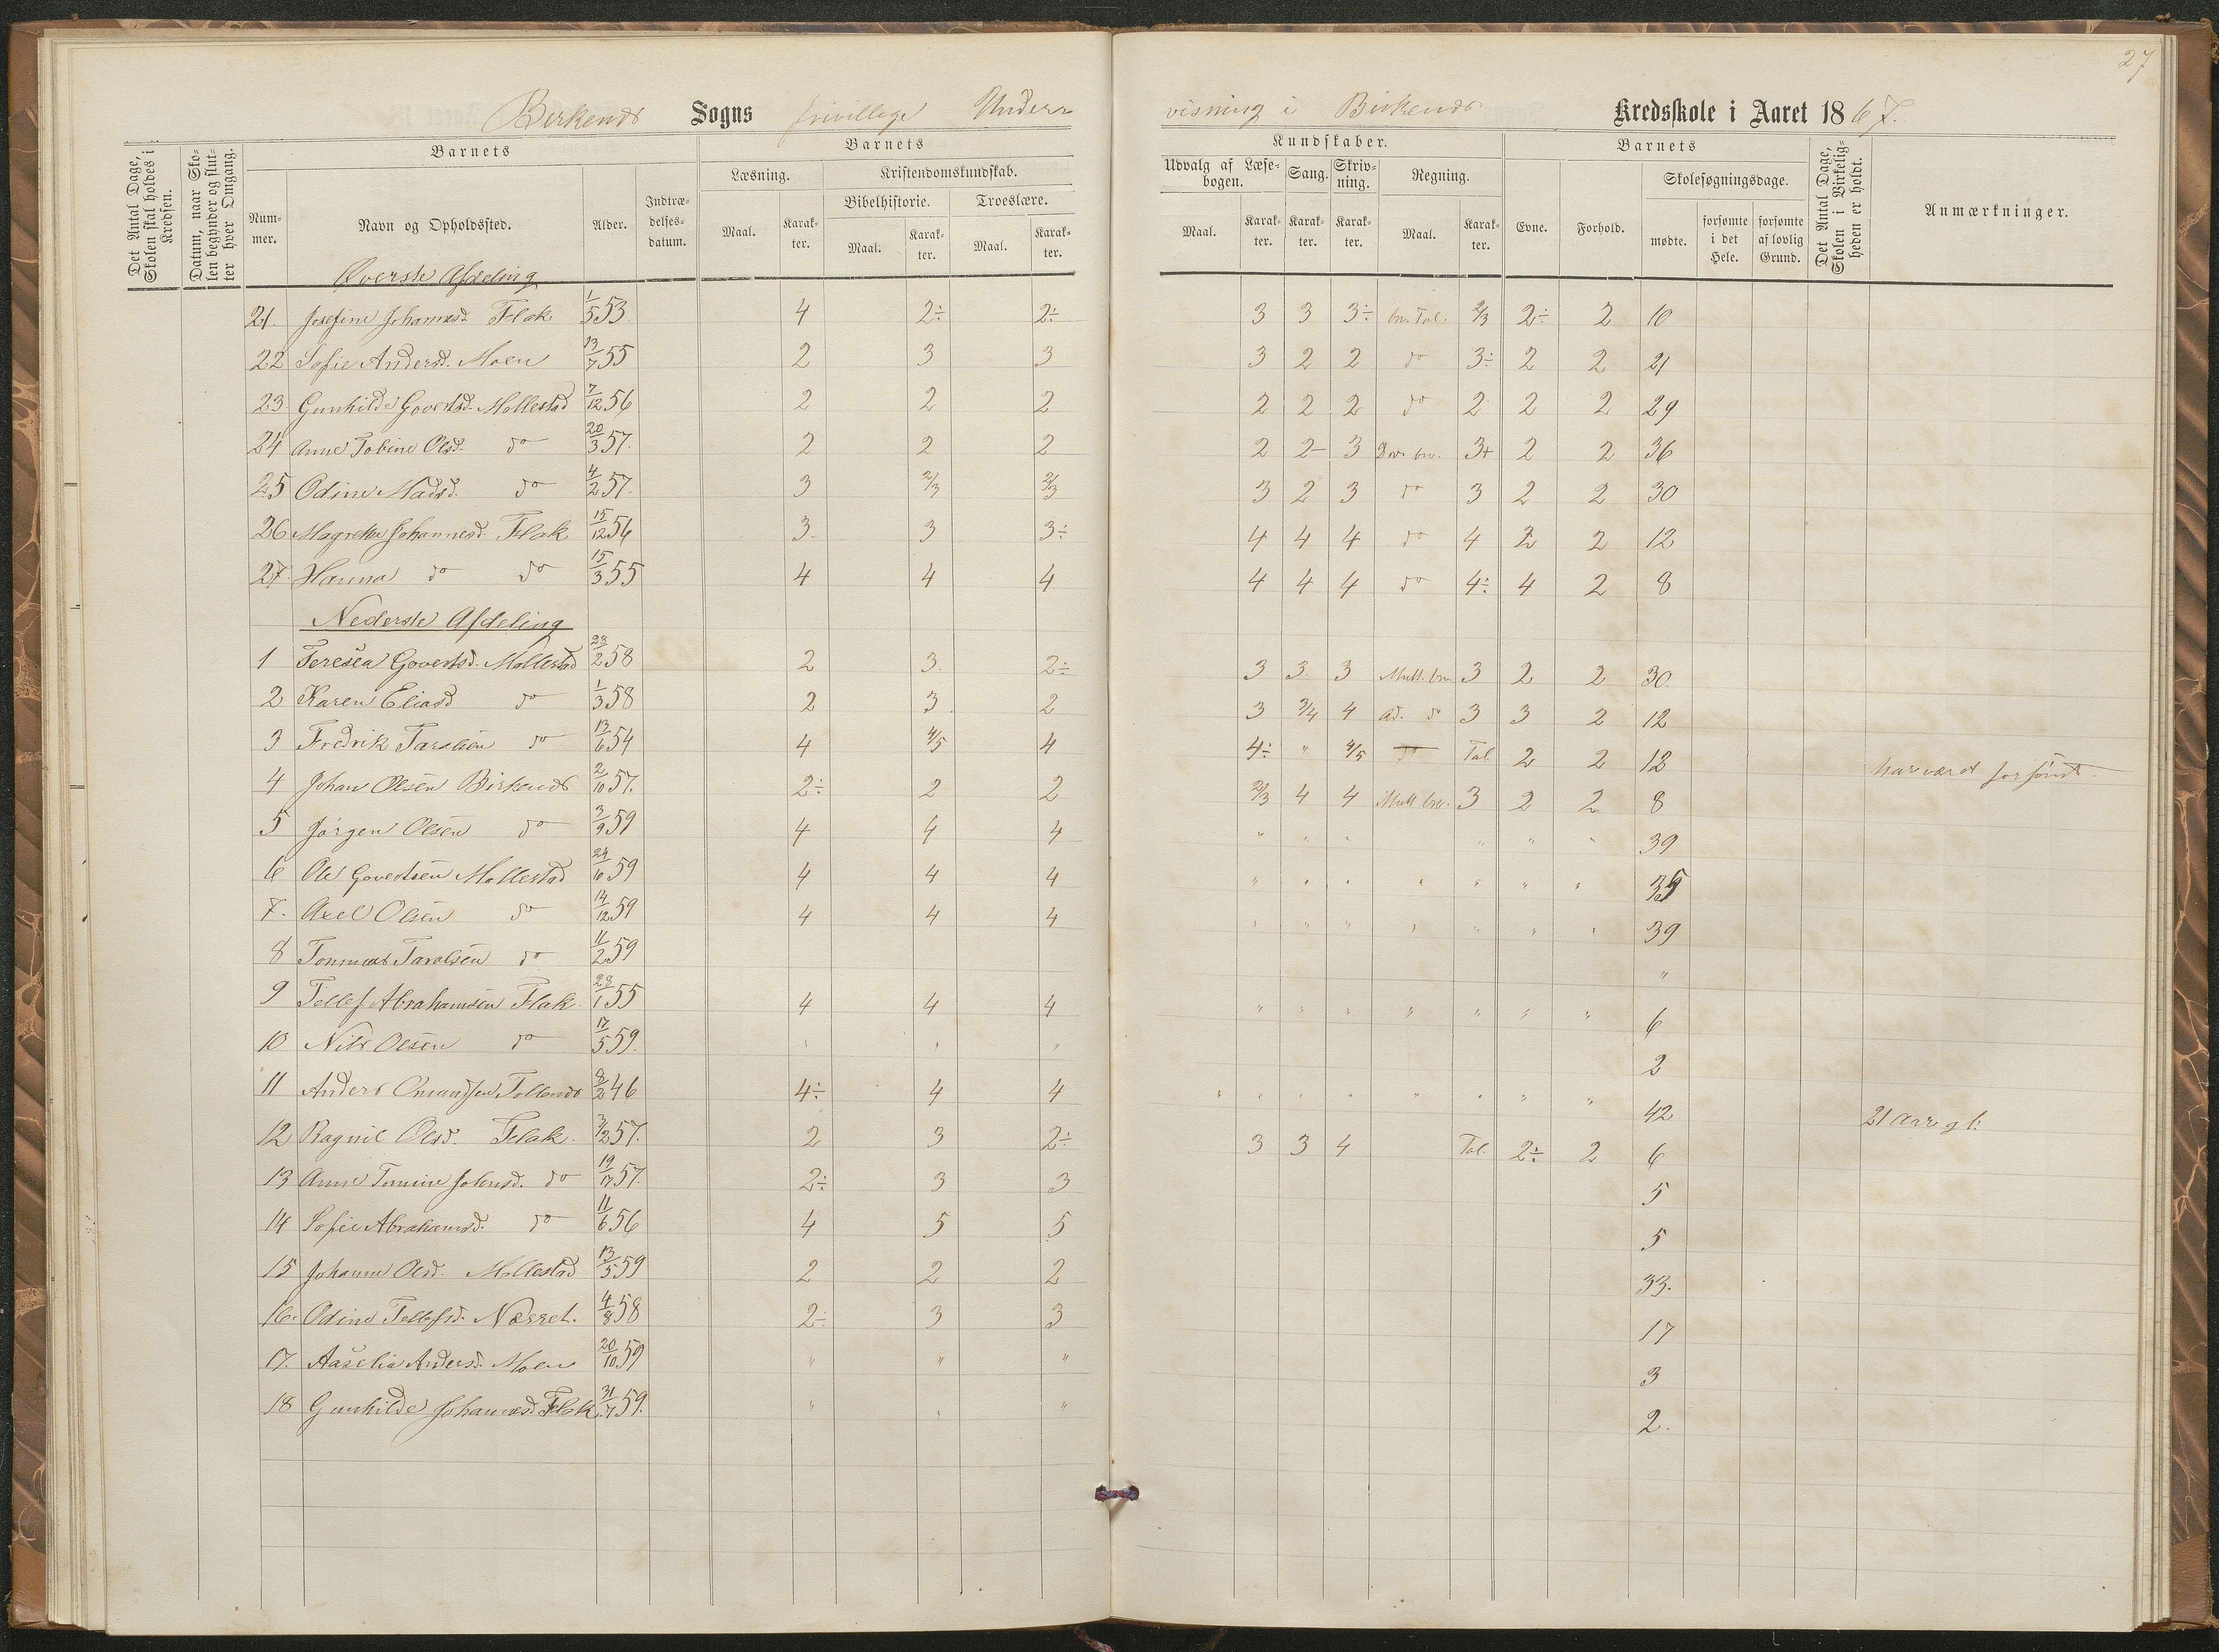 27
Birkenes Sogns frivillige Under=
visning i Birkenes Kredsskole i Aaret 1867.
Det Antal Dage, Skolen skal holdes i Kredsen.
Datum, naar Skolen begynder og slutter hver Omgang.
Barnets
Nummer.
Navn og Opholdssted.
Alder.
Indtrædelsesdatum.
Barnets
Læsning.
Kristendomskundskab.
Bibelhistorie.
Troeslære.
Maal.
Karakter.
Maal.
Karakter.
Maal.
Karakter.
Kundskaber.
Udvalg af Læsebogen.
Sang.
Skrivning.
Regning.
Maal.
Karakter.
Karakter.
Karakter.
Maal.
Karakter.
Barnets
Evne.
Forhold.
Skolesøgningsdage.
mødte.
forsømte i det Hele.
forsømte af lovlig Grund.
Det Antal Dage, Skolen i Virkeligheden er holdt.
Anmærkninger.
Øverste Afdeling
21. Josefine Johannesd. Flak 1/5 53 4 2÷ 2÷ 3 3 3÷ bn. Tal. 2/3 2÷ 2 10
22 Sofie Andersd. Moen 13/7 55 2 3 3 3 2 2 do 3÷ 2 2 21
23 Gunhilde Govertsd. Mollestad 7/12 56 2 2 2 2 2 2 do 2 2 2 29
24 Anne Tobine Olsd. do 20/3 57. 2 2 2 2 2- 3 bn. 3+ 2 2 36
25 Odine Madsd. do 4/2 57. 3 2/3 2/3 3 2 3 do 3 2 2 30
26 Magrethe Johannesd. Flak 15/12 56 3 3 3÷ 4 4 4 do 4 2 2 12
27. Hanna do do 15/3 55 4 4 4 4 4 4 do 4÷ 4 2 8
Nederste Afdeling
1 Teresea Govertsd. Mollestad 23/2 58 2 3. 2÷ 3 3 3 Mult. bn 3 2 2 30.
2 Karen Eliasd do 1/3 58 2 3 2 3 3/4 4 Ad. do 3 3 2 12
3 Fredrik Taralsen do 13/6 54 4 4/5 4 4÷ " 4/5 do Tal 2 2 12 har været forsømt.
4 Johan Olsen Birkenes 2/10 57. 2÷ 2 2 2/3 4 4 Mult bn. 3 2 2 8
5 Jørgen Olsen do 3/9 59 4 4 4 " " " " " " 39
6 Ole Govertsen Mollestad 24/10 59 4 4 4 " " " " " " " 35
7. Axel Olsen do 14/12 59 4 4 4 " " " " " " " 39
8 Tommas Taralsen do 11/2 59 "
9 Tellef Abrahamsen Flak 23/1 55 4 4 4 " " " " " " " 6
10 Nils Olsen do 17/5 59. " " " 2
11 Anders Omundsen Tollenes 8/2 46 4÷ 4 4 " " " " " " " " 42 21 Aar gl.
12 Ragnil Olsd. Flak 3/2 57. 2 3 2÷ 3 3 4 Tal. 2÷ 2 6
13 Anne Tomine Johnsd. do 19/7 57. 2÷ 3 3 5
14 Sofie Abrahamsd. do 11/6 56 4 5 5 5
15 Johanne Olsd. Mollestad 13/5 59 2 2 2 33.
16. Odine Tellefsd. 4/8 58 2÷ 3 3 17
17. Aaselia Andersd. Moen 20/10 59 " " " 3
18 Gunhilde Johannesd. Flak 31/7 59. " " " 2.